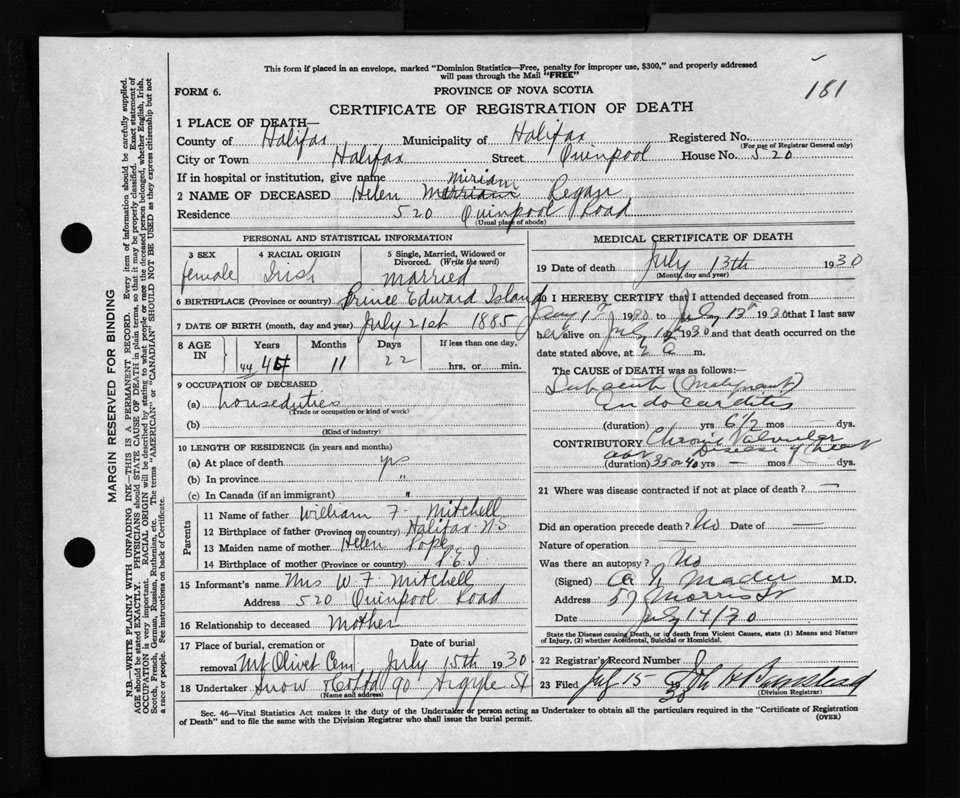 This form if placed in an envelope, marked "Dominion Statistics—Free, penalty for improper use, $300," and properly addressed
will pass through the Mail "FREE"
181
FORM 6.
PROVINCE OF NOVA SCOTIA
CERTIFICATE OF REGISTRATION OF DEATH
1 PLACE OF DEATH—
County of Halifax Municipality of Halifax Registered No.
(For use of Registrar General only)
City or Town Halifax Street Quinpool House No. 520
If in hospital or institution, give name
Miriam
2 NAME OF DECEASED Helen Regan
Residence 520 Quinpool Road
(Usual place of abode)
PERSONAL AND STATISTICAL INFORMATION
3 SEX 4 RACIAL ORIGIN 5 Single, Married, Widowed or
Divorced. (Write the word)
female Irish married
6 BIRTHPLACE (Province or country) Prince Edward Island
7 DATE OF BIRTH (month, day and year) July 21st 1885
8 AGE IN Years Months Days If less than one day,
44 11 22 hrs. or min.
9 OCCUPATION OF DECEASED
(a) houseduties
(Trade or occupation or kind of work)
(b)
(Kind of industry)
10 LENGTH OF RESIDENCE (in years and months)
(a) At place of death yrs
(b) In province "
(c) In Canada (if an immigrant) "
Parents
11 Name of father William F. Mitchell
12 Birthplace of father (Province or country) Halifax N.S
13 Maiden name of mother Helen Pope
14 Birthplace of mother (Province or country) P.E.I
15 Informant's name Mrs W. F. Mitchell
Address 520 Quinpool Road
16 Relationship to deceased Mother
17 Place of burial, cremation or Date of burial
removal Mt Olivet Cem July 15th 1930
18 Undertaker Snow 90 Argyle St
(Name and address)
MEDICAL CERTIFICATE OF DEATH
19 Date of death July 13th 1930
(Month, day and year)
20 I HEREBY CERTIFY that I attended deceased from
1930 to July 1930 that I last saw
her alive on July 1930 and that death occurred on
date stated above, at m.
The CAUSE of DEATH was as follows:—
Subacute (Malignant)
Endocarditis
(duration) yrs 6 1/2 mos dys.
CONTRIBUTORY Chronic Valvular
Disease of heart
(duration) 35 or 40 yrs — mos — dys.
21 Where was disease contracted if not at place of death? —
Did an operation precede death? No Date of —
Nature of operation —
Was there an autopsy? No
(Signed) Mader M.D.
Address 57 Morris St
Date July 14/30
State the Disease causing Death, or in death from Violent Causes, state (1) Means and Nature
of Injury, (2) whether Accidental, Suicidal or Homicidal.
22 Registrar's Record Number
23 Filed July 15 30
(Division Registrar)
Sec. 46—Vital Statistics Act makes it the duty of the Undertaker or person acting as Undertaker to obtain all the particulars required in the "Certificate of Registration
of Death" and to file the same with the Division Registrar who shall issue the burial permit. (OVER)
MARGIN RESERVED FOR BINDING
N.B.—WRITE PLAINLY WITH UNFADING INK—THIS IS A PERMANENT RECORD. Every item of information should be carefully supplied.
AGE should be stated EXACTLY. PHYSICIANS should STATE CAUSE OF DEATH in plain terms, so that it may be properly classified. Exact statement of
OCCUPATION is very important. RACIAL ORIGIN will be described by stating to what people or race the deceased person belonged, whether English, Irish,
Scotch, French, German, Russian, Ruthenian, etc. The terms "AMERICAN" or "CANADIAN" SHOULD NOT BE USED as they express citizenship but not
a race or people. See instructions on back of Certificate.